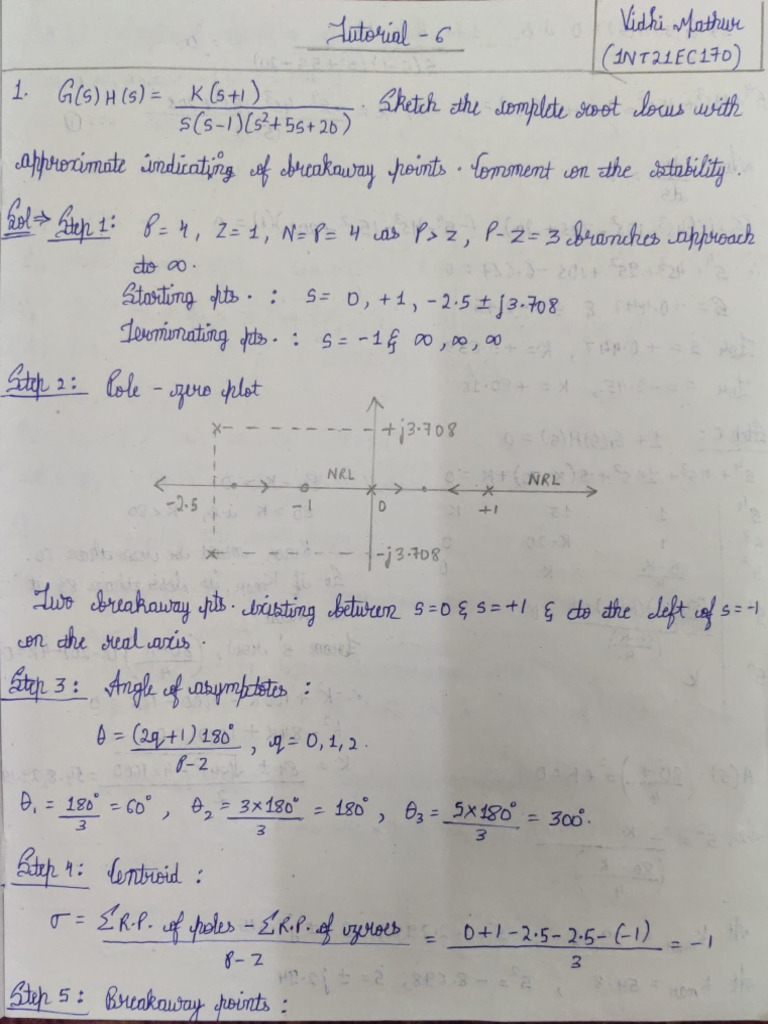 Tutorial - 6
Vidhi Mathur
(1NT21EC170)
1. G(s)H(s) = K(s+1) / s(s-1)(s²+5s+20) . Sketch the complete root locus with
approximate indicating of breakaway points. Comment on the stability.
Sol⇒ Step 1: P = 4, Z = 1, N = P = 4 as P > Z, P-Z = 3 branches approach
to ∞.
Starting pts. : s = 0, +1, -2.5 ± j3.708
Terminating pts. : s = -1 & ∞, ∞, ∞
Step 2: Pole - zero plot
+j3.708
NRL NRL
-2.5 -1 0 +1
-j3.708
Two breakaway pts. existing between s=0 & s=+1 & to the left of s=-1
on the real axis.
Step 3: Angle of asymptotes :
θ = (2q+1)180° / P-Z , q = 0, 1, 2.
θ₁ = 180°/3 = 60° , θ₂ = 3×180°/3 = 180° , θ₃ = 5×180°/3 = 300°.
Step 4: Centroid :
σ = ΣR.P. of poles - ΣR.P. of zeroes / P-Z = 0+1-2.5-2.5-(-1) / 3 = -1
Step 5: Breakaway points :